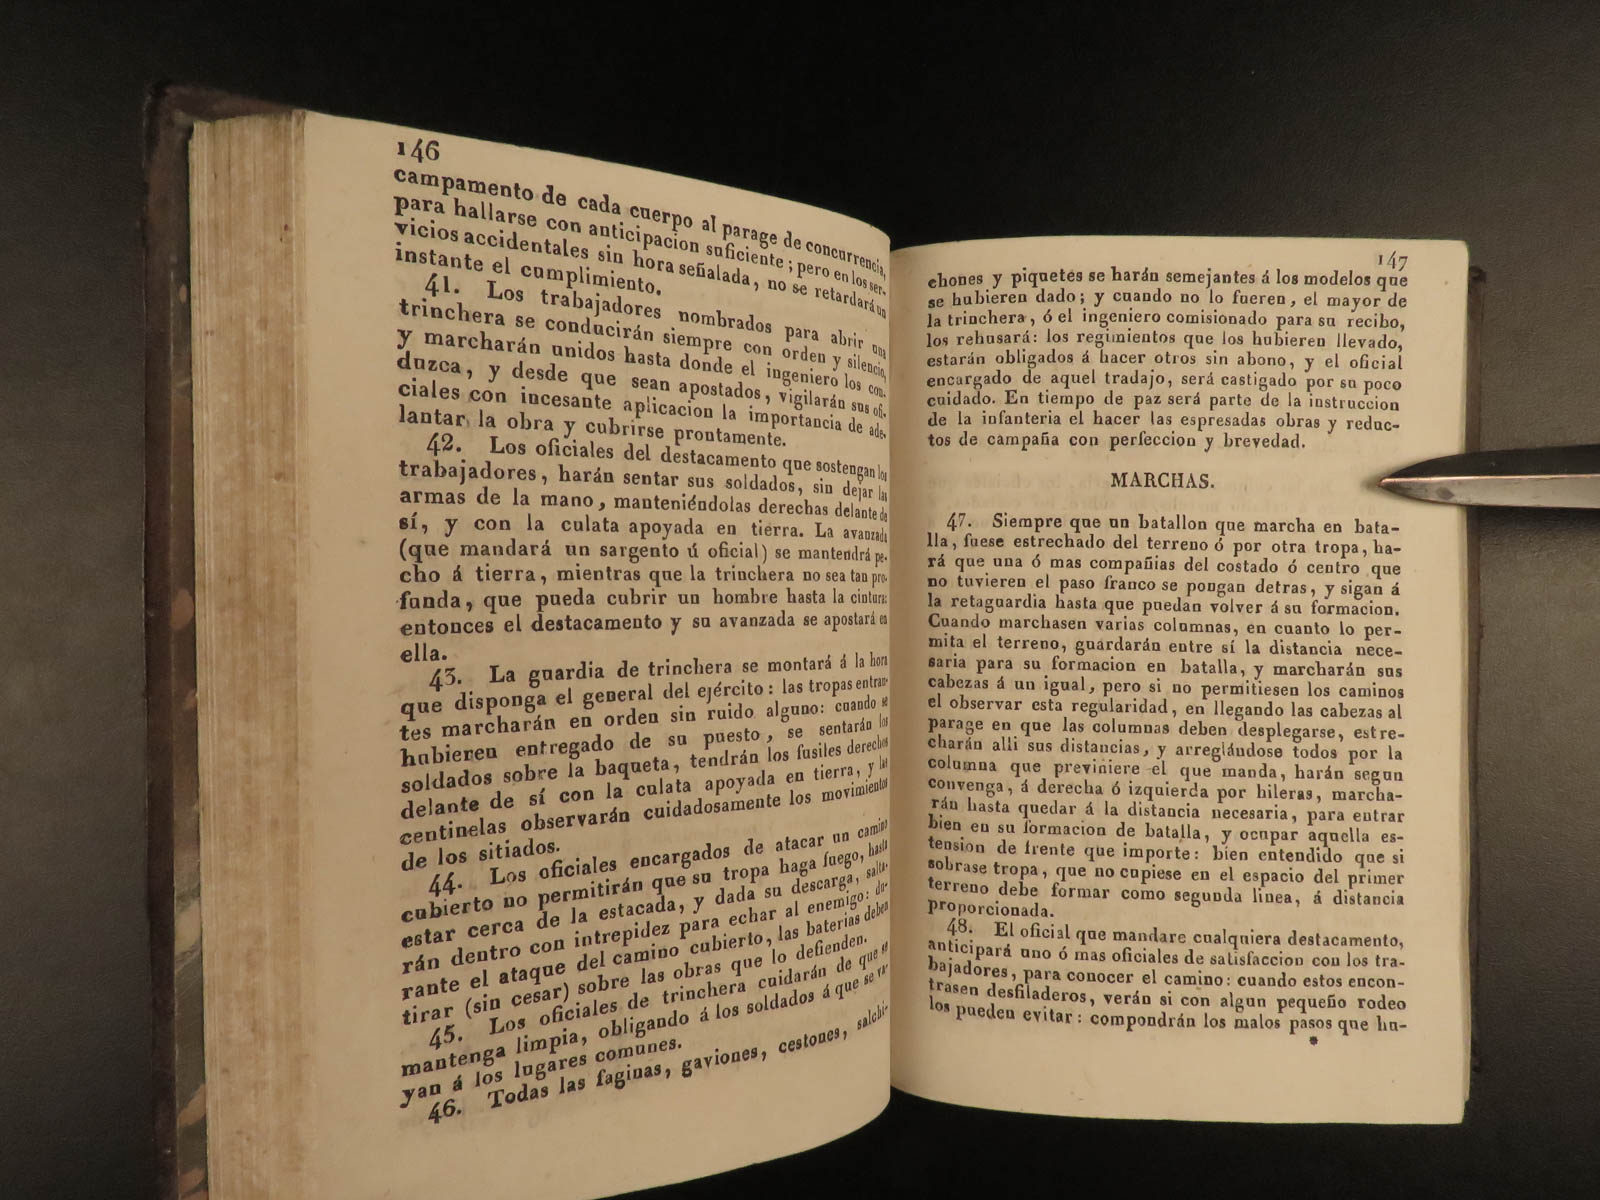 146
campamento de cada cuerpo al parage de concurrencia,
para hallarse con anticipacion suficiente; pero en los ser-
vicios accidentales sin hora señalada, no se retardará un
instante el cumplimiento.
41. Los trabajadores nombrados para abrir una
trinchera se conducirán siempre con orden y silencio,
y marcharán unidos hasta donde el ingeniero los con-
duzca, y desde que sean apostados, vigilarán sus ofi-
ciales con incesante aplicacion la importancia de ade-
lantar la obra y cubrirse prontamente.
42. Los oficiales del destacamento que sostengan los
trabajadores, harán sentar sus soldados, sin dejar las
armas de la mano, manteniéndolas derechas delante de
sí, y con la culata apoyada en tierra. La avanzada
(que mandará un sargento ú oficial) se mantendrá pe-
cho á tierra, mientras que la trinchera no sea tan pro-
funda, que pueda cubrir un hombre hasta la cintura:
entonces el destacamento y su avanzada se apostará en
ella.
43. La guardia de trinchera se montará á la hora
que disponga el general del ejército: las tropas entran-
tes marcharán en orden sin ruido alguno: cuando se
hubieren entregado de su puesto, se sentarán los
soldados sobre la baqueta, tendrán los fusiles derechos
delante de sí con la culata apoyada en tierra, y las
centinelas observarán cuidadosamente los movimientos
de los sitiados.
44. Los oficiales encargados de atacar un camino
cubierto no permitirán que su tropa haga fuego, hasta
estar cerca de la estacada, y dada su descarga, salta-
rán dentro con intrepidez para echar al enemigo: du-
rante el ataque del camino cubierto, las baterías deben
tirar (sin cesar) sobre las obras que lo defienden.
45. Los oficiales de trinchera cuidarán de que se
mantenga limpia, obligando á los soldados á que se va-
yan á los lugares comunes.
46. Todas las faginas, gaviones, cestones, salchi-
147
chones y piquetes se harán semejantes á los modelos que
se hubieren dado; y cuando no lo fueren, el mayor de
la trinchera, ó el ingeniero comisionado para su recibo,
los rehusará: los regimientos que los hubieren llevado,
estarán obligados á hacer otros sin abono, y el oficial
encargado de aquel tradajo, será castigado por su poco
cuidado. En tiempo de paz será parte de la instruccion
de la infanteria el hacer las espresadas obras y reduc-
tos de campaña con perfeccion y brevedad.
MARCHAS.
47. Siempre que un batallon que marcha en bata-
lla, fuese estrechado del terreno ó por otra tropa, ha-
rá que una ó mas compañias del costado ó centro que
no tuvieren el paso franco se pongan detras, y sigan á
la retaguardia hasta que puedan volver á su formacion.
Cuando marchasen varias columnas, en cuanto lo per-
mita el terreno, guardarán entre sí la distancia nece-
saria para su formacion en batalla, y marcharán sus
cabezas á un igual, pero si no permitiesen los caminos
el observar esta regularidad, en llegando las cabezas al
parage en que las columnas deben desplegarse, estre-
charán alli sus distancias, y arreglándose todos por la
columna que previniere el que manda, harán segun
convenga, á derecha ó izquierda por hileras, marcha-
rán hasta quedar á la distancia necesaria, para entrar
bien en su formacion de batalla, y ocupar aquella es-
tension de frente que importe: bien entendido que si
sobrase tropa, que no cupiese en el espacio del primer
terreno debe formar como segunda linea, á distancia
proporcionada.
48. El oficial que mandare cualquiera destacamento,
anticipará uno ó mas oficiales de satisfaccion con los tra-
bajadores, para conocer el camino: cuando estos encon-
trasen desfiladeros, verán si con algun pequeño rodeo
los pueden evitar: compondrán los malos pasos que hu-
*